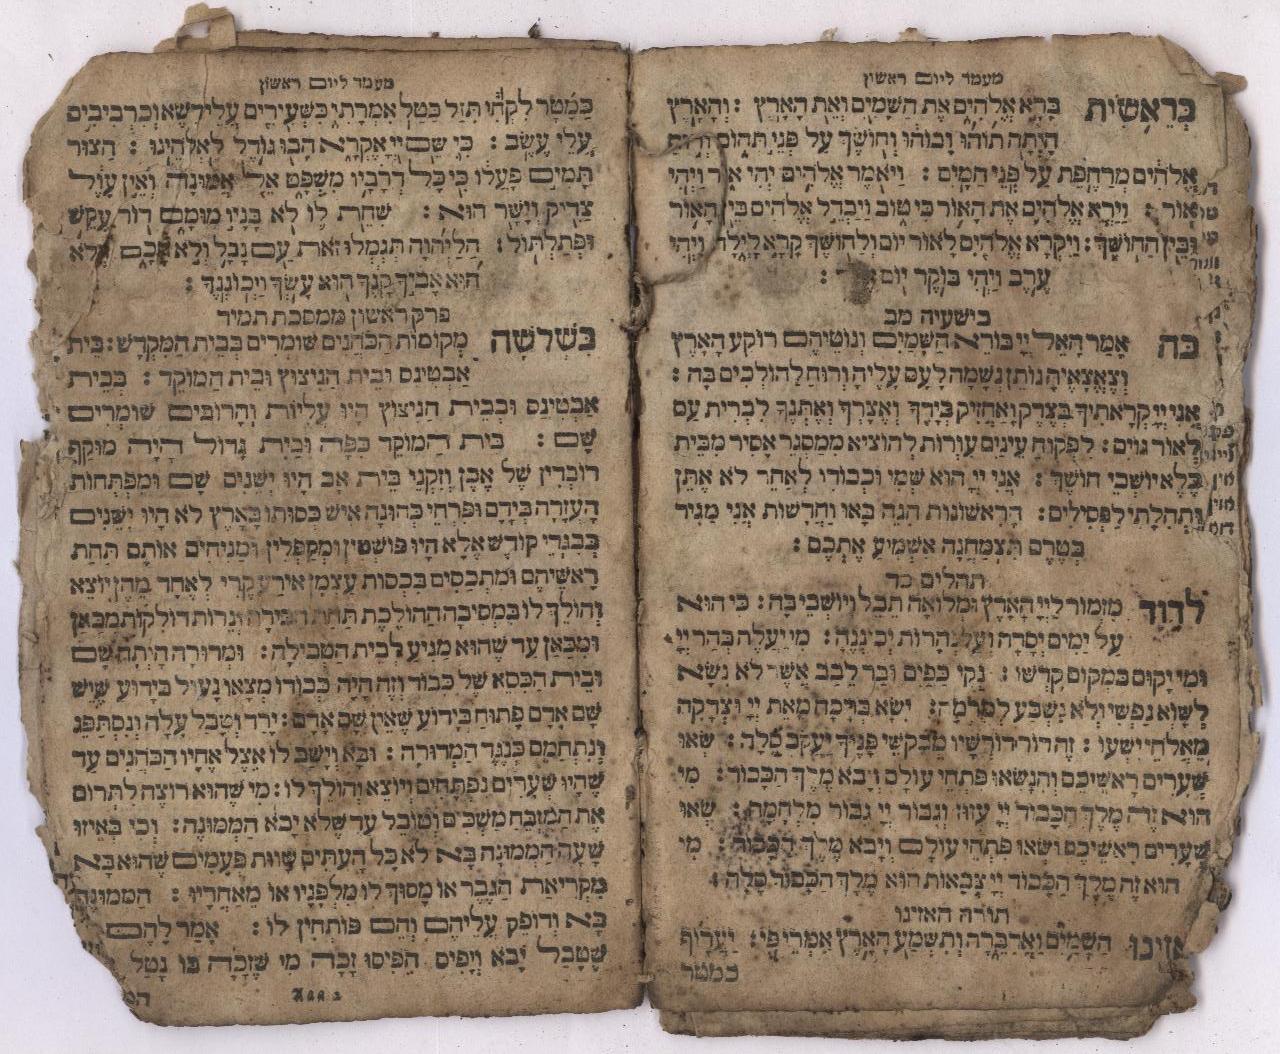 מעמד ליום ראשון
בְּרֵאשִׁית בָּרָא אֱלֹהִים אֵת הַשָּׁמַיִם וְאֵת הָאָרֶץ : וְהָאָרֶץ
הָיְתָה תוֹהוּ וָבוֹהוּ וְחוֹשֶׁךְ עַל פְּנֵי תְהוֹם
אֱלֹהִים מְרַחֶפֶת עַל פְּנֵי הַמָּיִם : וַיֹּאמֶר אֱלֹהִים יְהִי אוֹר וַיְהִי
אוֹר : וַיַּרְא אֱלֹהִים אֶת הָאוֹר כִּי טוֹב וַיַּבְדֵּל אֱלֹהִים בֵּין הָאוֹר
וּבֵין הַחוֹשֶׁךְ : וַיִּקְרָא אֱלֹהִים לָאוֹר יוֹם וְלַחוֹשֶׁךְ קָרָא לָיְלָה וַיְהִי
עֶרֶב וַיְהִי בוֹקֶר יוֹם :
בישעיה מב
כֹּה אָמַר הָאֵל יְיָ בּוֹרֵא הַשָּׁמַיִם וְנוֹטֵיהֶם רוֹקַע הָאָרֶץ
וְצֶאֱצָאֶיהָ נוֹתֵן נְשָׁמָה לָעָם עָלֶיהָ וְרוּחַ לַהוֹלְכִים בָּהּ :
אֲנִי יְיָ קְרָאתִיךָ בְצֶדֶק וְאַחְזֵיק בְּיָדֶךָ וְאֶצָּרְךָ וְאֶתֶּנְךָ לִבְרִית עָם
לְאוֹר גּוֹיִם : לִפְקוֹחַ עֵינַיִם עִוְרוֹת לְהוֹצִיא מִמַּסְגֵּר אַסִּיר מִבֵּית
כֶּלֶא יוֹשְׁבֵי חוֹשֶׁךְ : אֲנִי יְיָ הוּא שְׁמִי וּכְבוֹדִי לְאַחֵר לֹא אֶתֵּן
וּתְהִלָּתִי לַפְּסִילִים : הָרִאשׁוֹנוֹת הִנֵּה בָאוּ וַחֲדָשׁוֹת אֲנִי מַגִּיד
בְּטֶרֶם תִּצְמַחְנָה אַשְׁמִיעַ אֶתְכֶם :
תהלים כד
לְדָוִד מִזְמוֹר לַיְיָ הָאָרֶץ וּמְלוֹאָהּ תֵּבֵל וְיוֹשְׁבֵי בָהּ : כִּי הוּא
עַל יַמִּים יְסָדָהּ וְעַל נְהָרוֹת יְכוֹנְנֶהָ : מִי יַעֲלֶה בְהַר יְיָ
וּמִי יָקוּם בִּמְקוֹם קָדְשׁוֹ : נְקִי כַפַּיִם וּבַר לֵבָב אֲשֶׁר לֹא נָשָׂא
לַשָּׁוְא נַפְשִׁי וְלֹא נִשְׁבַּע לְמִרְמָה : יִשָּׂא בְרָכָה מֵאֵת יְיָ וּצְדָקָה
מֵאֱלֹהֵי יִשְׁעוֹ : זֶה דּוֹר דּוֹרְשָׁיו מְבַקְשֵׁי פָנֶיךָ יַעֲקֹב סֶלָה : שְׂאוּ
שְׁעָרִים רָאשֵׁיכֶם וְהִנָּשְׂאוּ פִּתְחֵי עוֹלָם וְיָבֹא מֶלֶךְ הַכָּבוֹד : מִי
הוּא זֶה מֶלֶךְ הַכָּבוֹד יְיָ עִזּוּז וְגִבּוֹר יְיָ גִּבּוֹר מִלְחָמָה : שְׂאוּ
שְׁעָרִים רָאשֵׁיכֶם וּשְׂאוּ פִּתְחֵי עוֹלָם וְיָבֹא מֶלֶךְ הַכָּבוֹד : מִי
הוּא זֶה מֶלֶךְ הַכָּבוֹד יְיָ צְבָאוֹת הוּא מֶלֶךְ הַכָּבוֹד סֶלָה :
תורה האזינו
הַשָּׁמַיִם וַאֲדַבֵּרָה וְתִשְׁמַע הָאָרֶץ אִמְרֵי פִי : יַעֲרוֹף
כמטר
מעמד ליום ראשון
כַּמָּטָר לִקְחִי תִּזַּל כַּטַּל אִמְרָתִי כִּשְׂעִירִים עֲלֵי דֶשֶׁא וְכִרְבִיבִים
עֲלֵי עֵשֶׂב : כִּי שֵׁם יְיָ אֶקְרָא הָבוּ גוֹדֶל לֵאלֹהֵינוּ : הַצּוּר
תָּמִים פָּעֳלוֹ כִּי כָל דְּרָכָיו מִשְׁפָּט אֵל אֱמוּנָה וְאֵין עָוֶל
צַדִּיק וְיָשָׁר הוּא : שִׁחֵת לוֹ לֹא בָּנָיו מוּמָם דּוֹר עִקֵּשׁ
וּפְתַלְתּוֹל : הַלַיְהוָה תִּגְמְלוּ זֹאת עַם נָבָל וְלֹא חָכָם הֲלֹא
הוּא אָבִיךָ קָּנֶךָ הוּא עָשְׂךָ וַיְכוֹנְנֶךָ :
פרק ראשון ממסכת תמיד
בִּשְׁלֹשָׁה מְקוֹמוֹת הַכֹּהֲנִים שׁוֹמְרִים בְּבֵית הַמִּקְדָּשׁ : בֵּית
אַבְטִינָס וּבֵית הַנִּיצוֹץ וּבֵית הַמּוֹקֵד : בְּבֵית
אַבְטִינָס וּבְבֵית הַנִּיצוֹץ הָיוּ עֲלִיּוֹת וְהָרוֹבִים שׁוֹמְרִים
שָׁם : בֵּית הַמּוֹקֵד כִּפָּה וּבַיִת גָּדוֹל הָיָה מוּקָּף
רוֹבְדִין שֶׁל אֶבֶן וְזִקְנֵי בֵּית אָב הָיוּ יְשֵׁנִים שָׁם וּמַפְתְּחוֹת
הָעֲזָרָה בְּיָדָם וּפִרְחֵי כְהוּנָּה אִישׁ כְּסוּתוֹ בָּאָרֶץ לֹא הָיוּ יְשֵׁנִים
בְּבִגְדֵי קוֹדֶשׁ אֶלָּא הָיוּ פוֹשְׁטִין וּמְקַפְּלִין וּמַנִּיחִים אוֹתָם תַּחַת
רָאשֵׁיהֶם וּמִתְכַּסִּים בִּכְסוּת עַצְמָן אֵירַע קֶרִי לְאֶחָד מֵהֶן יוֹצֵא
וְהוֹלֵךְ לוֹ בַּמְּסִיבָּה הַהוֹלֶכֶת תַּחַת הַבִּירָה וְנֵרוֹת דּוֹלְקוֹת מִכָּאן
וּמִכָּאן עַד שֶׁהוּא מַגִּיעַ לְבֵית הַטְּבִילָה : וּמְדוּרָה הָיְתָה שָׁם
וּבֵית הַכִּסֵּא שֶׁל כָּבוֹד וְזֶה הָיָה כְּבוֹדוֹ מְצָאוֹ נָעוּל בְּיָדוּעַ שֶׁיֵּשׁ
שָׁם אָדָם פָּתוּחַ בְּיָדוּעַ שֶׁאֵין שָׁם אָדָם : יָרַד וְטָבַל עָלָה וְנִסְתַּפַּג
וְנִתְחַמֵּם כְּנֶגֶד הַמְּדוּרָה : וּבָא וְיָשַׁב לוֹ אֵצֶל אֶחָיו הַכֹּהֲנִים עַד
שֶׁהָיוּ שְׁעָרִים נִפְתָּחִים וְיוֹצֵא וְהוֹלֵךְ לוֹ : מִי שֶׁהוּא רוֹצֶה לִתְרוֹם
אֶת הַמִּזְבֵּחַ מַשְׁכִּים וְטוֹבֵל עַד שֶׁלֹּא יָבֹא הַמְּמוּנֶּה : וְכִי בְּאֵיזוֹ
שָׁעָה הַמְּמוּנֶּה בָּא לֹא כָל הָעִתִּים שָׁווֹת פְּעָמִים שֶׁהוּא בָּא
מִקְּרִיאַת הַגֶּבֶר אוֹ סָמוּךְ לוֹ מִלְּפָנָיו אוֹ מֵאַחֲרָיו : הַמְּמוּנֶּה
בָּא וְדוֹפֵק עֲלֵיהֶם וְהֵם פּוֹתְחִין לוֹ : אָמַר לָהֶם
שֶׁטָּבַל יָבֹא וְיָפִיס הֵפִיסוּ זָכָה מִי שֶׁזָּכָה בּוֹ נָטַל